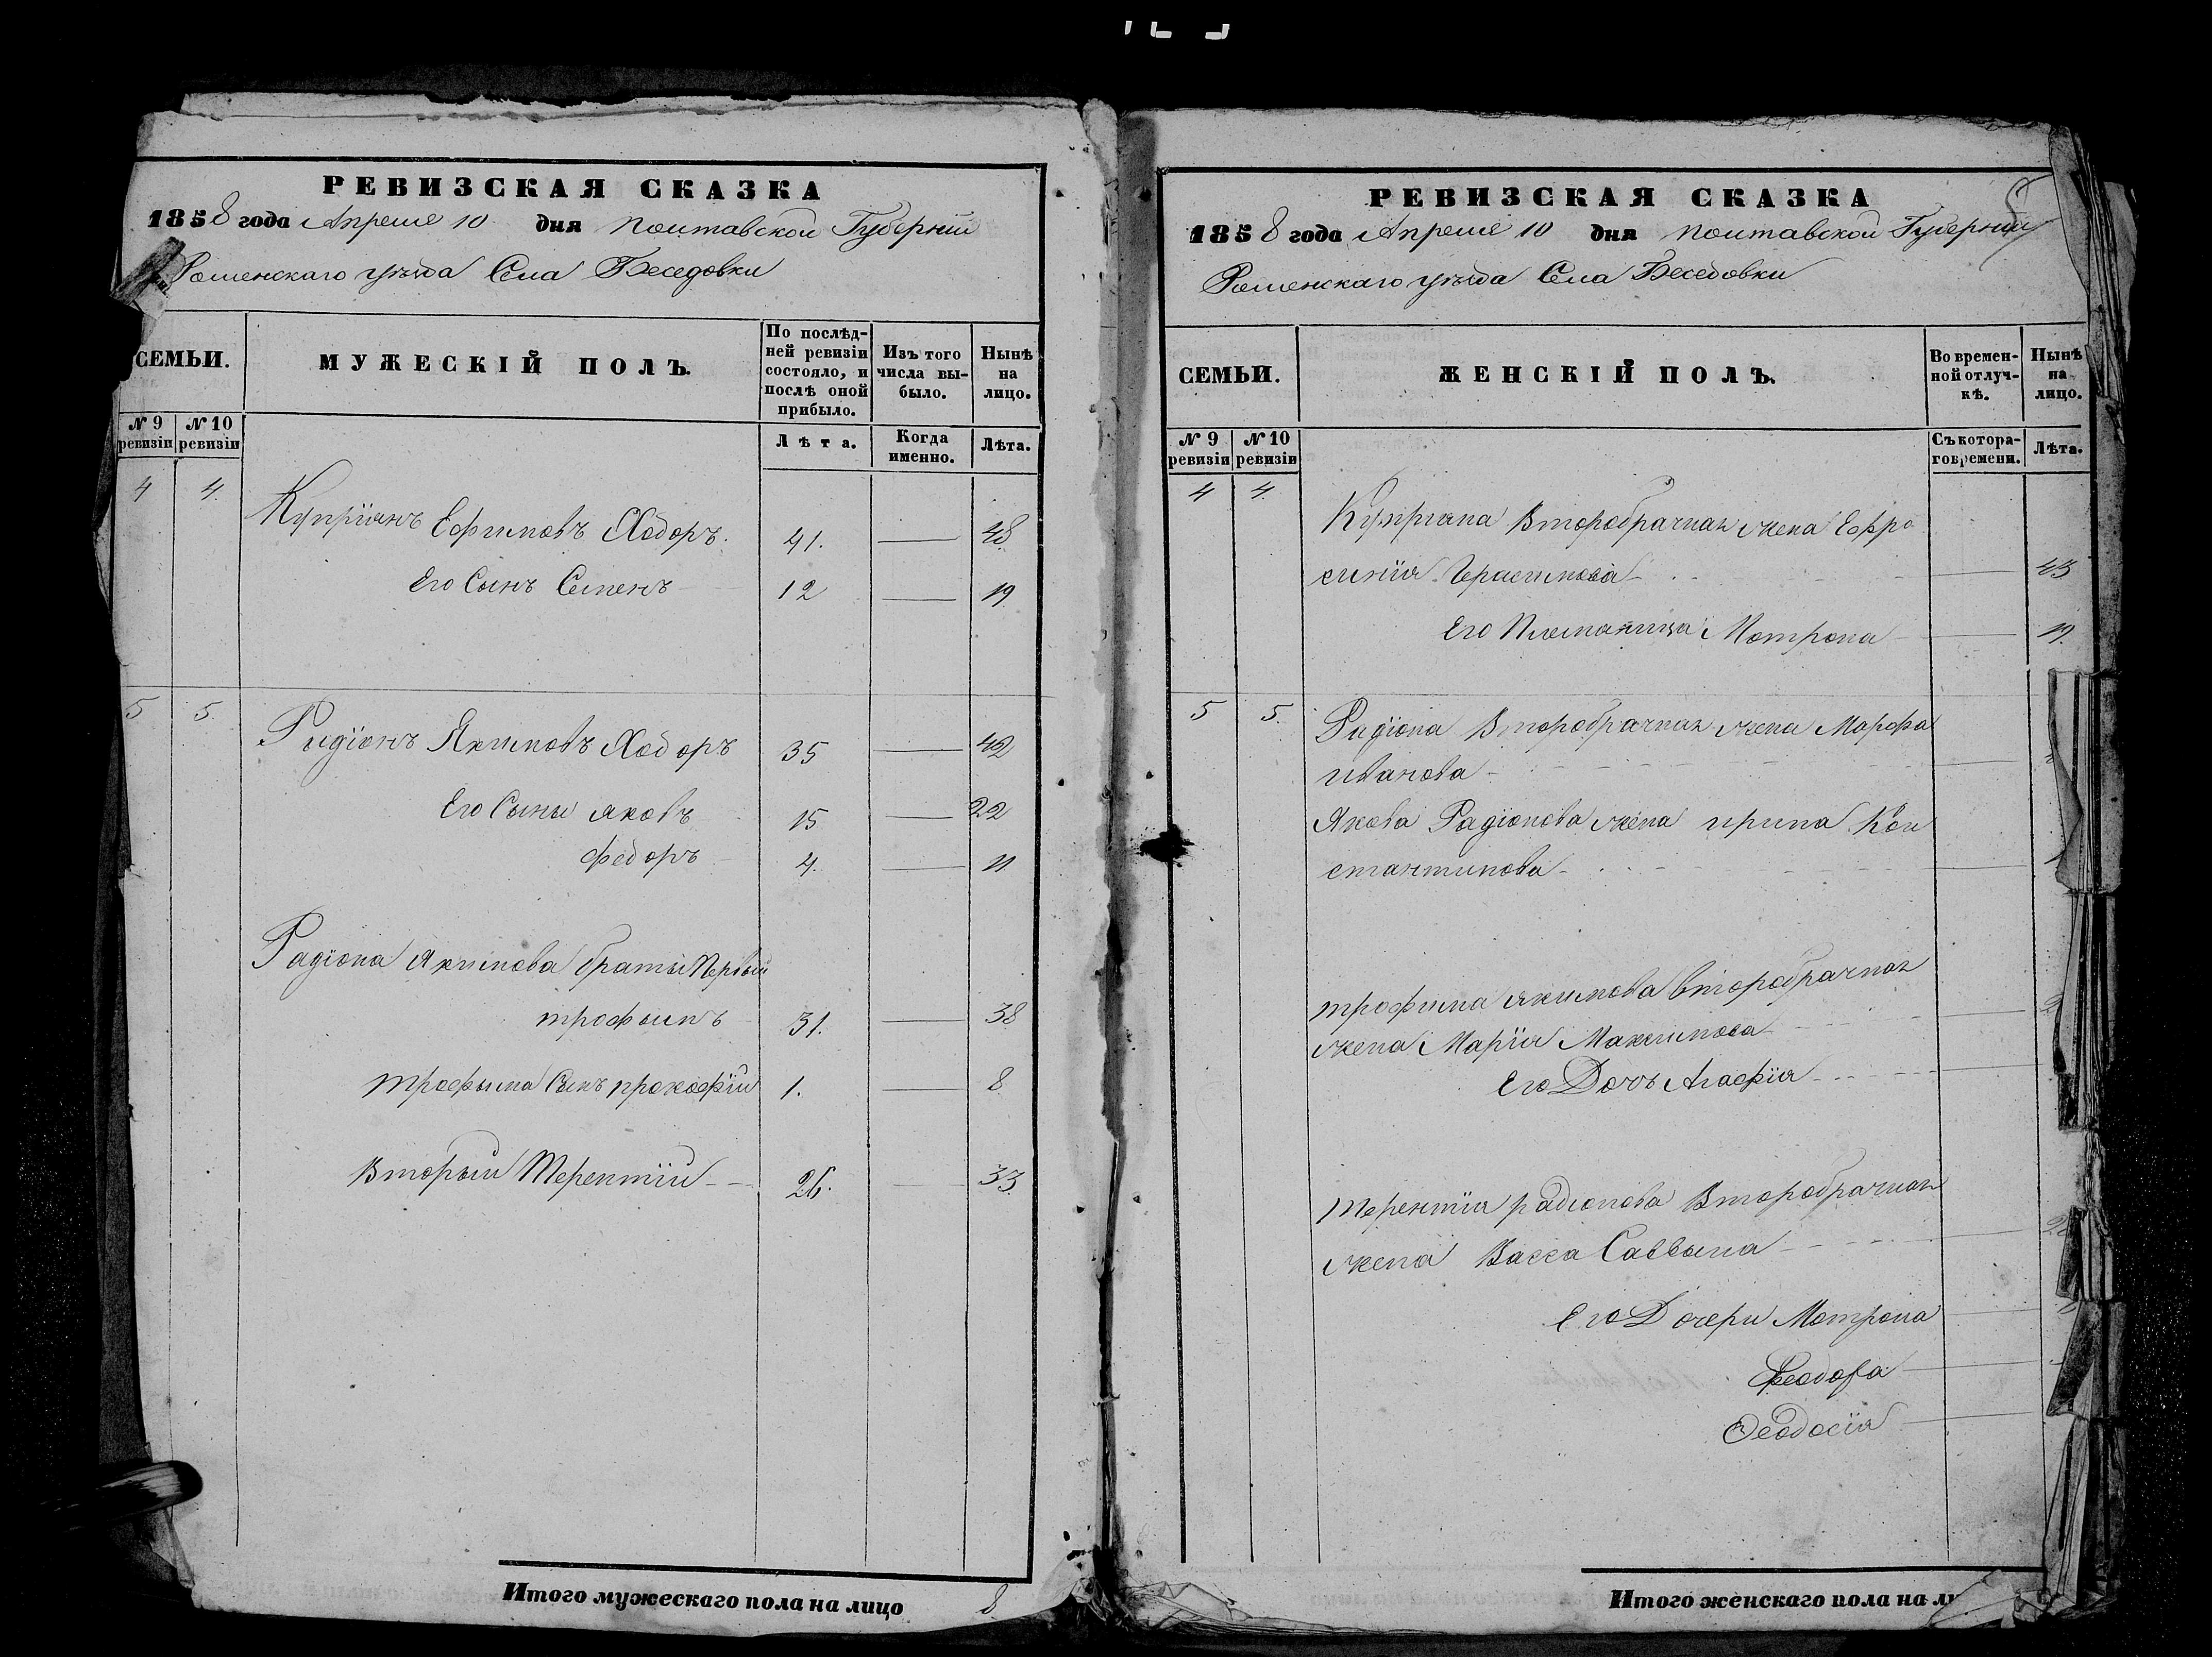 РЕВИЗСКАЯ СКАЗКА
1858 года Апреля 10 дня Полтавской Губернии
Роменскаго уезда Села Беседовки
СЕМЬИ.
МУЖЕСКІЙ ПОЛЪ.
По послѣд-
ней ревизіи
состояло, и
послѣ оной
прибыло.
Изъ того
числа вы-
было.
Нынѣ
на
лицо.
№ 9
ревизіи
№ 10
ревизіи
Лѣта.
Когда
именно.
Лѣта.
4 4.
Купріянъ Ефимовъ Ходоръ. 41. — 48
Его Сынъ Семенъ 12 — 19
5 5.
Радіонъ Якимовъ Ходоръ 35 — 42
Его Сыны яковъ 15 — 22
федоръ 4. — 11
Радіона Якимова братьи Первый
трофымъ 31. — 38
трофыма Сынъ прокофій 1. — 8
Вторый Терентій 26. — 33
Итого мужескаго пола на лицо 8
РЕВИЗСКАЯ СКАЗКА
1858 года Апреля 10 дня Полтавской Губернии
Роменскаго уезда Села Беседовки
СЕМЬИ.
ЖЕНСКІЙ ПОЛЪ.
Во времен-
ной отлуч-
кѣ.
Нынѣ
на
лицо.
№ 9
ревизіи
№ 10
ревизіи
Съ котора-
го времени.
Лѣта.
4 4.
Куприяна Второбрачная жена Ефро
синія Герасимова — 43
Его Племяница Мотрона — 19
5 5.
Радіона Второбрачная жена Марфа
иванова —
Якова Радіонова жена ирина Кон
стантинова —
трофима якимова второбрачная
жена Марія Максимова —
Его Дочь Агафія —
Терентія радіонова Второбрачная
жена Васса Саввына —
Его Дочери Мотрона —
Феодора —
Феодосія —
Итого женскаго пола на ли